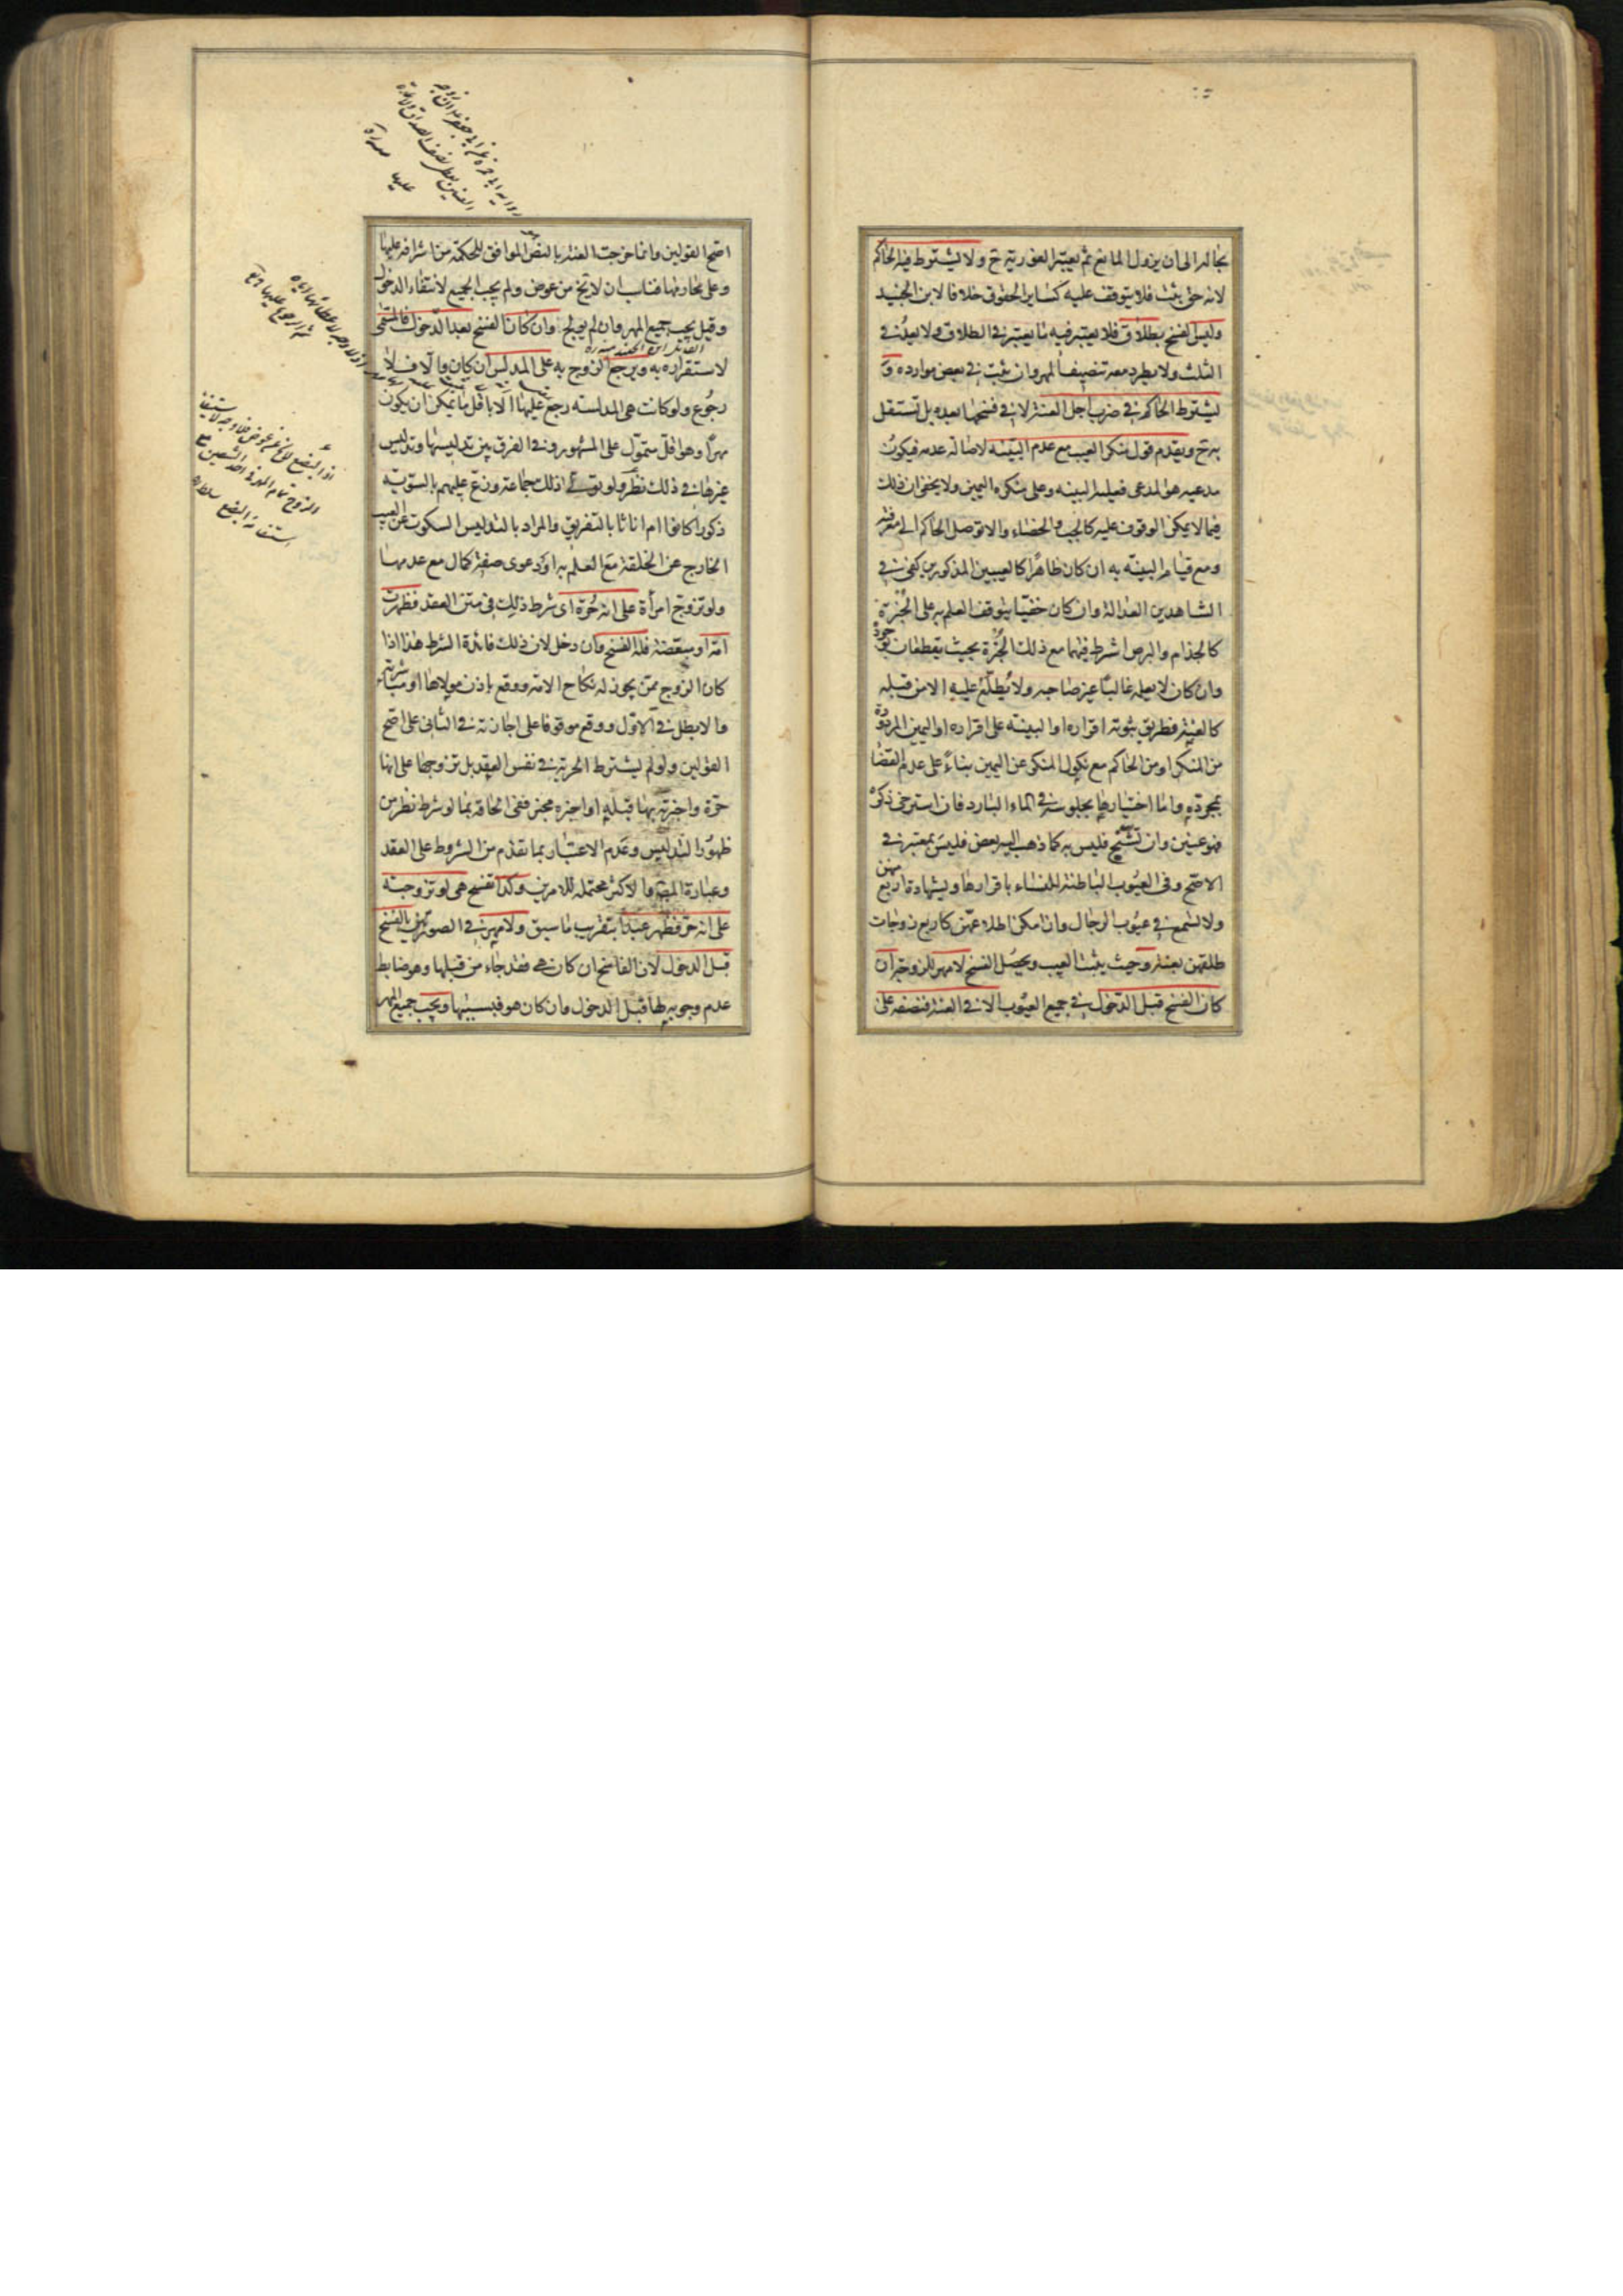 بحاله الى ان يزول المانع ثم يعتبر الفورية ح ولا يشترط فيه الحاكم
لانه حق ثبت فلا يتوقف عليه كساير الحقوق خلافا لابن الجنيد
وليس الفسخ بطلاق فلا يعتبر فيه ما يعتبر في الطلاق ولا يعد في
الثلث ولا يطرد معه تنصيف المهر وان ثبت في بعض موارده و
يشترط الحاكم في ضرب اجل العنة لا في فسخها بعده بل تستقل
به ح ويقدم قول منكر العيب مع عدم البينة لاصالة عدمه فيكون
مدعيه هو المدعى فعليه البينه وعلى منكره اليمين ولا يخفى ان ذلك
فيما لا يمكن الوقوف عليه كالجب والخصاء والا توصل الحاكم الى معرفته
ومع قيام البينة به ان كان ظاهرا كالعيبين المذكورين كفى في
الشاهدين العدالة وان كان خفيا يتوقف العلم به على الخبرة
كالجذام والبرص اشترط فيهما مع ذلك الخبرة بحيث يقطعان بوجوده
وان كان لا يعلمه غالبا غير صاحبه ولا يطلع عليه الا من قبله
كالعنة فطريق ثبوته اقراره او البينة على اقراره او اليمين المردودة
من المنكر او من الحاكم مع نكول المنكر عن اليمين بناء على عدم القضا
بمجرده واما اختبارها بجلوسه في الماء البارد فان استرخى ذكره
فهو عنين وان تشنج فليس به كما ذهب اليه بعض فليس بمعتبر في
الاصح وفى العيوب الباطنة للنساء باقرارها وبشهادة اربع منهن
ولا تسمع في عيوب الرجال وان امكن اطلاعهن كاربع زوجات
طلقهن بعنة وحيث يثبت العيب ويحصل الفسخ لا مهر للزوجة ان
كان الفسخ قبل الدخول في جميع العيوب الا في العنة فنصفه على
اصح القولين وانما خرجت العنة بالنص الموافق للحكمة من اشرافه عليها
وعلى محارمها فناسب ان لا يخ من عوض ولم يجب الجميع لانتفاء الدخول
وقيل يجب جميع المهر وان لم يولج وان كان الفسخ بعد الدخول فالمسمى
القائل ابن الجنيد منه ره
لاستقراره به ويرجع الزوج به على المدلس ان كان والا فلا
رجوع ولو كانت هي المدلسة رجع عليها الا باقل ما يمكن ان يكون
مهرا وهو اقل متمول على المشهور وفي الفرق بين تدليسها وتدليس
غيرها في ذلك نظر ولو تولى ذلك جماعة وزع عليهم بالسوية
ذكورا كانوا ام اناثا بالتفريق والمراد بالتدليس السكوت عن العيب
الخارج عن الخلقة مع العلم به او دعوى صفة كمال مع عدمها
ولو تزوج امرأة على انه حرة اى شرط ذلك في متن العقد فظهرت
امة او مبعضة فله الفسخ وان دخل لان ذلك فائدة الشرط هذا اذا
كان الزوج ممن يجوز له نكاح الامة ووقع باذن مولاها او مباشرته
والا بطل في الاول ووقع موقوفا على اجازته في الثانى على اصح
القولين ولو لم يشترط الحرية في نفس العقد بل تزوجها على انها
حرة واخبرته بها قبله او اخبره مخبر ففى الحاقه بما لو شرط نظر من
ظهور التدليس وعدم الاعتبار بما تقدم من الشروط على العقد
وعبارة المصر والاكثر محتملة للامرين وكذا تفسخ هي لو تزوجته
على انه حر فظهر عبدا بتقريب ما سبق ولا مهر في الصورتين بالفسخ
قبل الدخول لان الفاسخ ان كان هي فقد جاء من قبلها وهو ضابط
عدم وجوبه لها قبل الدخول وان كان هو فبسببها ويجب جميع المهر